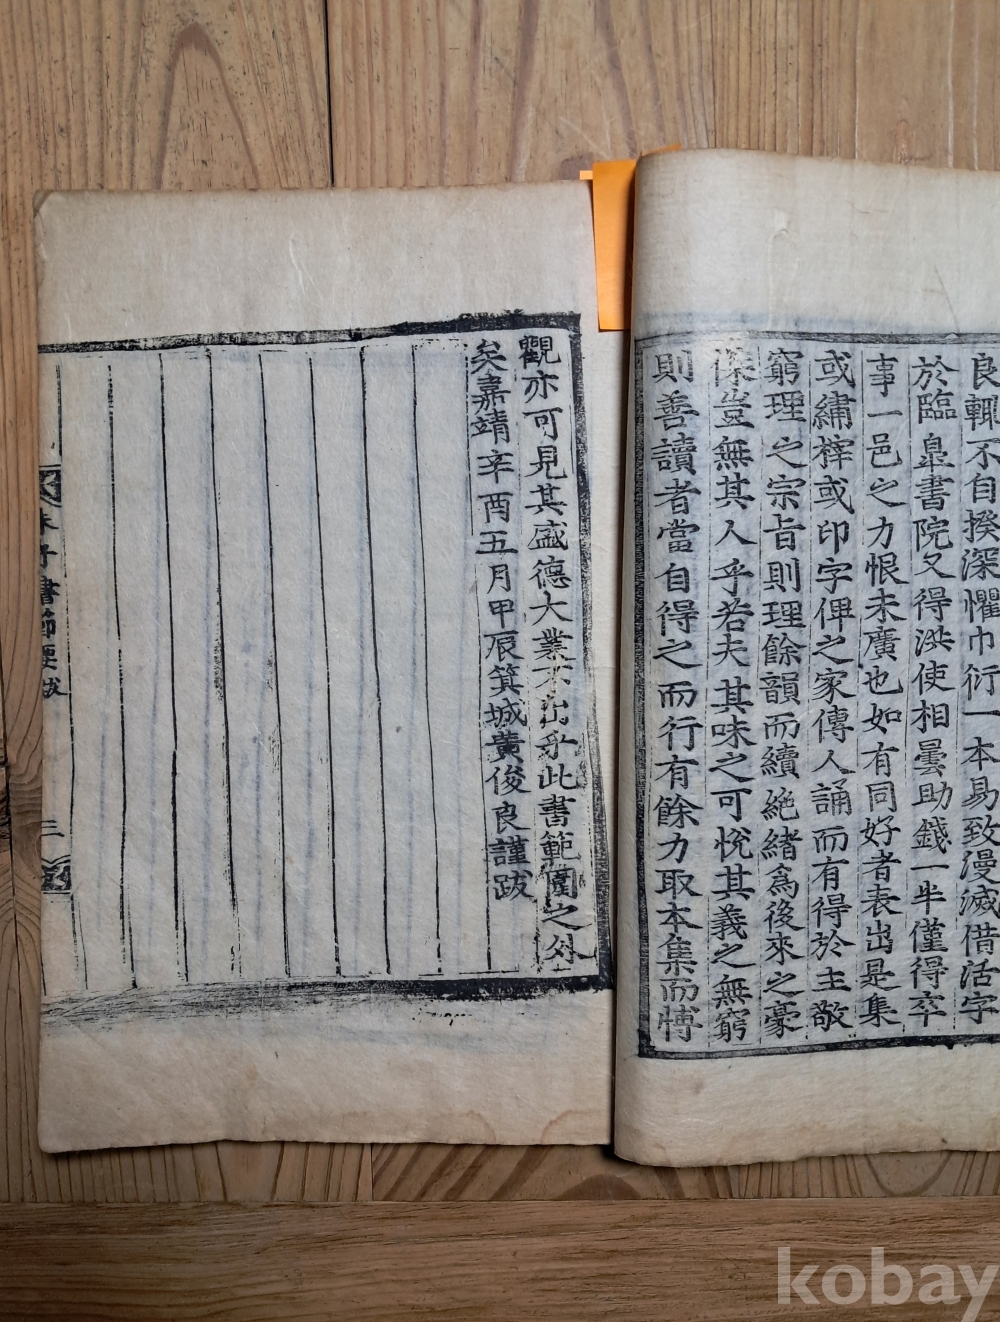 良輒不自揆深懼巾衍一本易致漫滅借活字
於臨皐書院又得洪使相曇助錢一半僅得卒
事一邑之力恨未廣也如有同好者表出是集
或繡梓或印字俾之家傳人誦而有得於主敬
窮理之宗旨則理餘韻而續絶緒爲後來之豪
傑豈無其人乎若夫其味之可悅其義之無窮
則善讀者當自得之而行有餘力取本集而博
觀亦可見其盛德大業不出乎此書範圍之外
矣嘉靖辛酉五月甲辰箕城黃俊良謹跋
朱子書節要跋
三
kobay